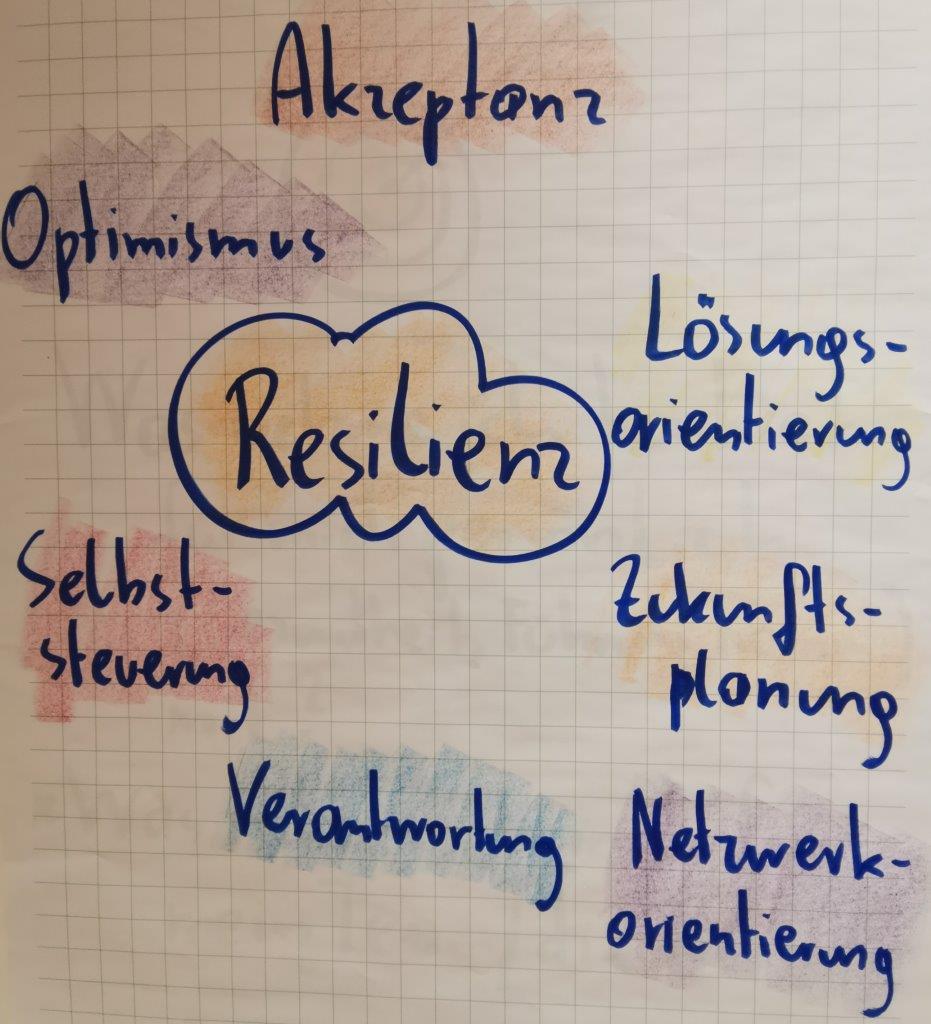 Akzeptanz
Optimismus
Lösungs-
orientierung
Resilienz
Selbst-
steuerung
Zukunfts-
planung
Verantwortung
Netzwerk-
orientierung